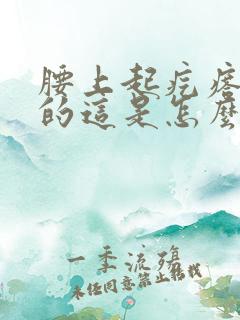 腰上起疙瘩
的這是怎麼
一季流殤
未經同意禁止轉載